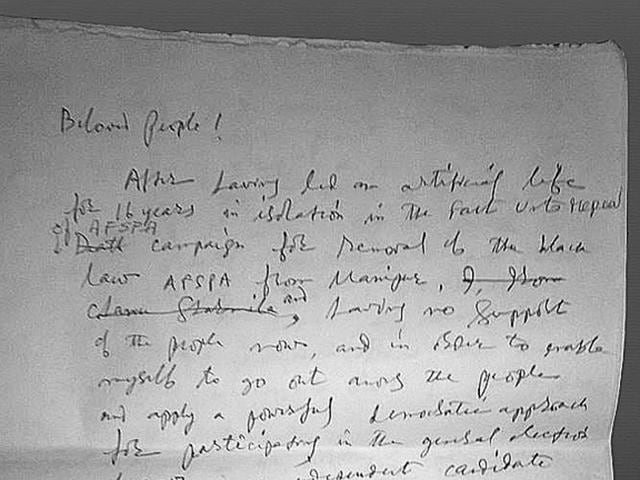 Beloved People!
After having led an artificial life
for 16 years in isolation in the Fast Unto Repeal
of AFSPA
Death campaign for removal of the black
law AFSPA from Manipur, I, Irom
Chanu Sharmila and, having no support
of the people now, and in order to enable
myself to go out among the people
and apply a powerful democratic approach
for participating in the general election
independent candidate